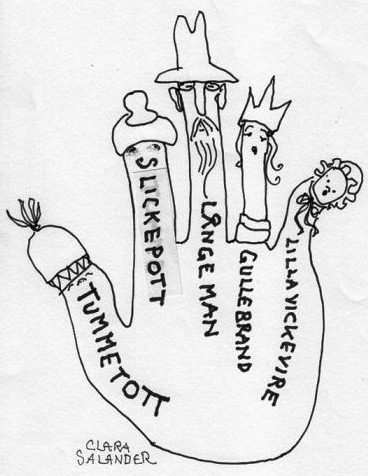 TUMMETOTT
SLICKEPOTT
LÅNGE MAN
GULLEBRAND
LILLA VICKEVIRE
CLARA
SALANDER